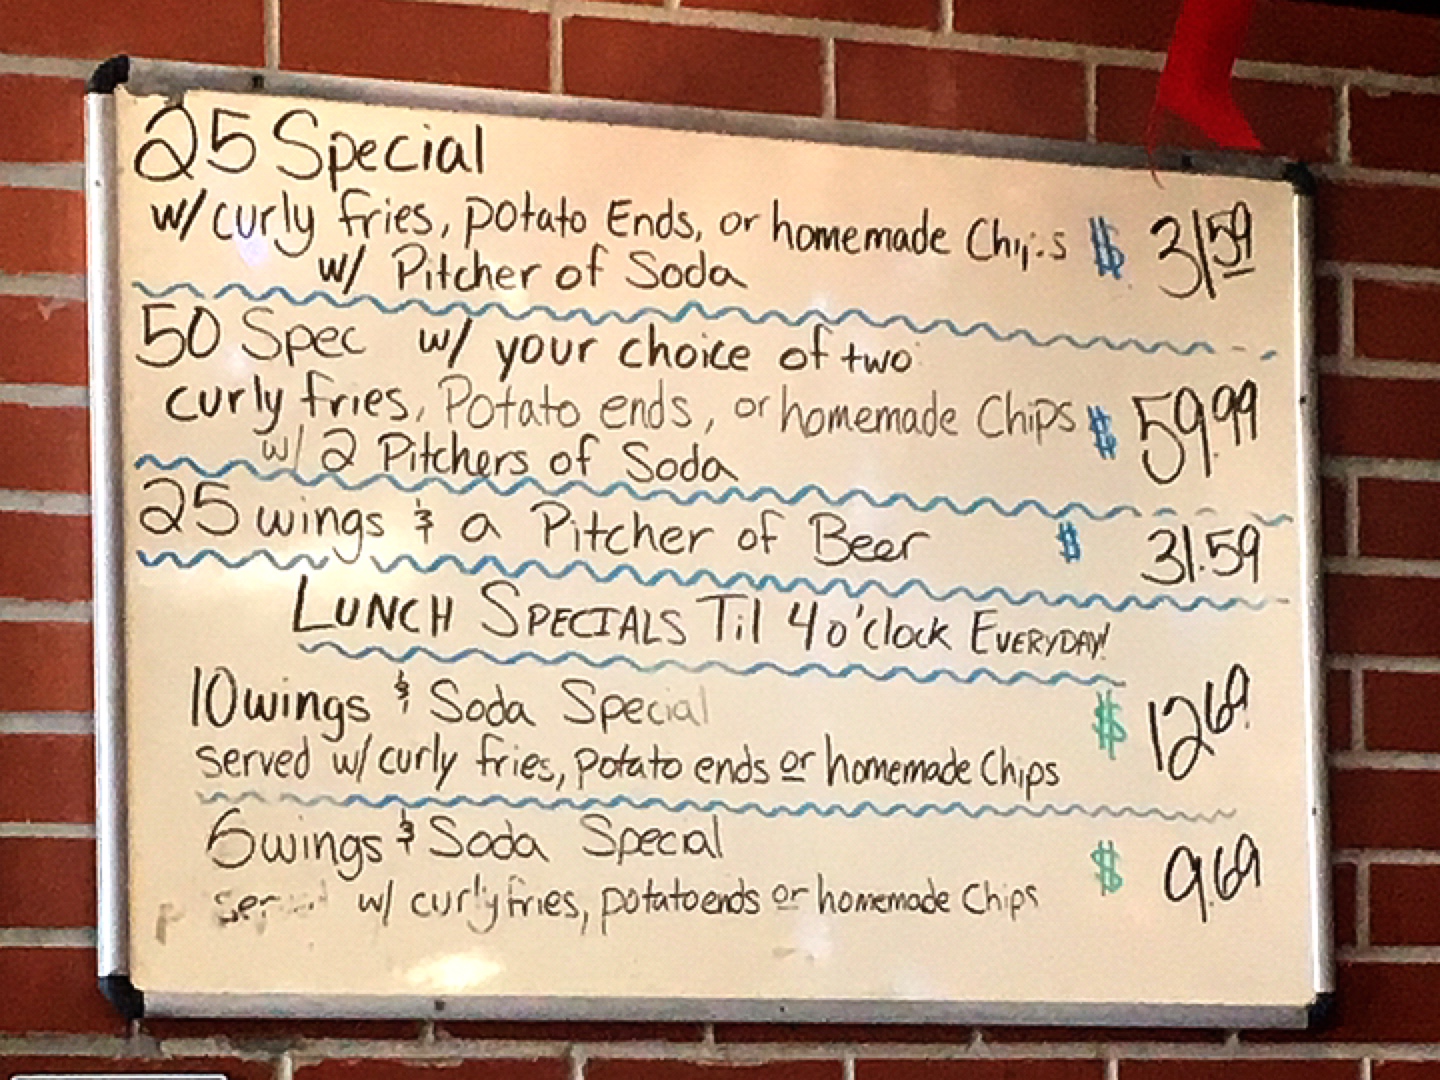 25 Special
w/ curly fries, potato Ends, or homemade Chips $ 31.59
w/ Pitcher of Soda
50 Spec w/ your choice of two
curly fries, Potato ends, or homemade Chips $ 59.99
w/ 2 Pitchers of Soda
25 wings & a Pitcher of Beer $ 31.59
LUNCH SPECIALS Til 4 o'clock EVERYDAY!
10 wings & Soda Special $ 12.69
served w/ curly fries, potato ends or homemade Chips
6 wings & Soda Special $ 9.69
w/ curly fries, potato ends or homemade Chips